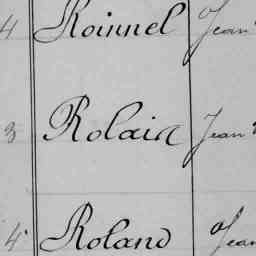 4 Roinnel Jean
3 Rolain Jean
4 Roland Jean